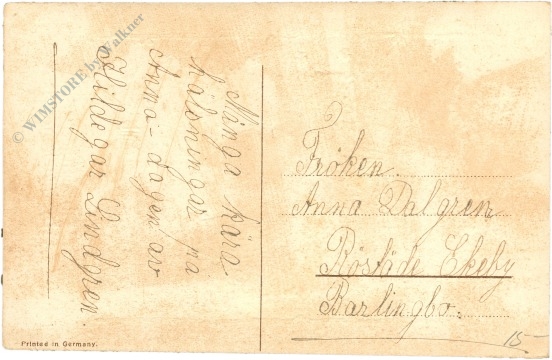 Många kära
hälsningar på
Anna-dagen av
Hildegar Lindgren.
Fröken.
Anna Dalgren
Röstäde Ekeby
Barlingbo.
15-
Printed in Germany.
© WIMSTORE by Walkner